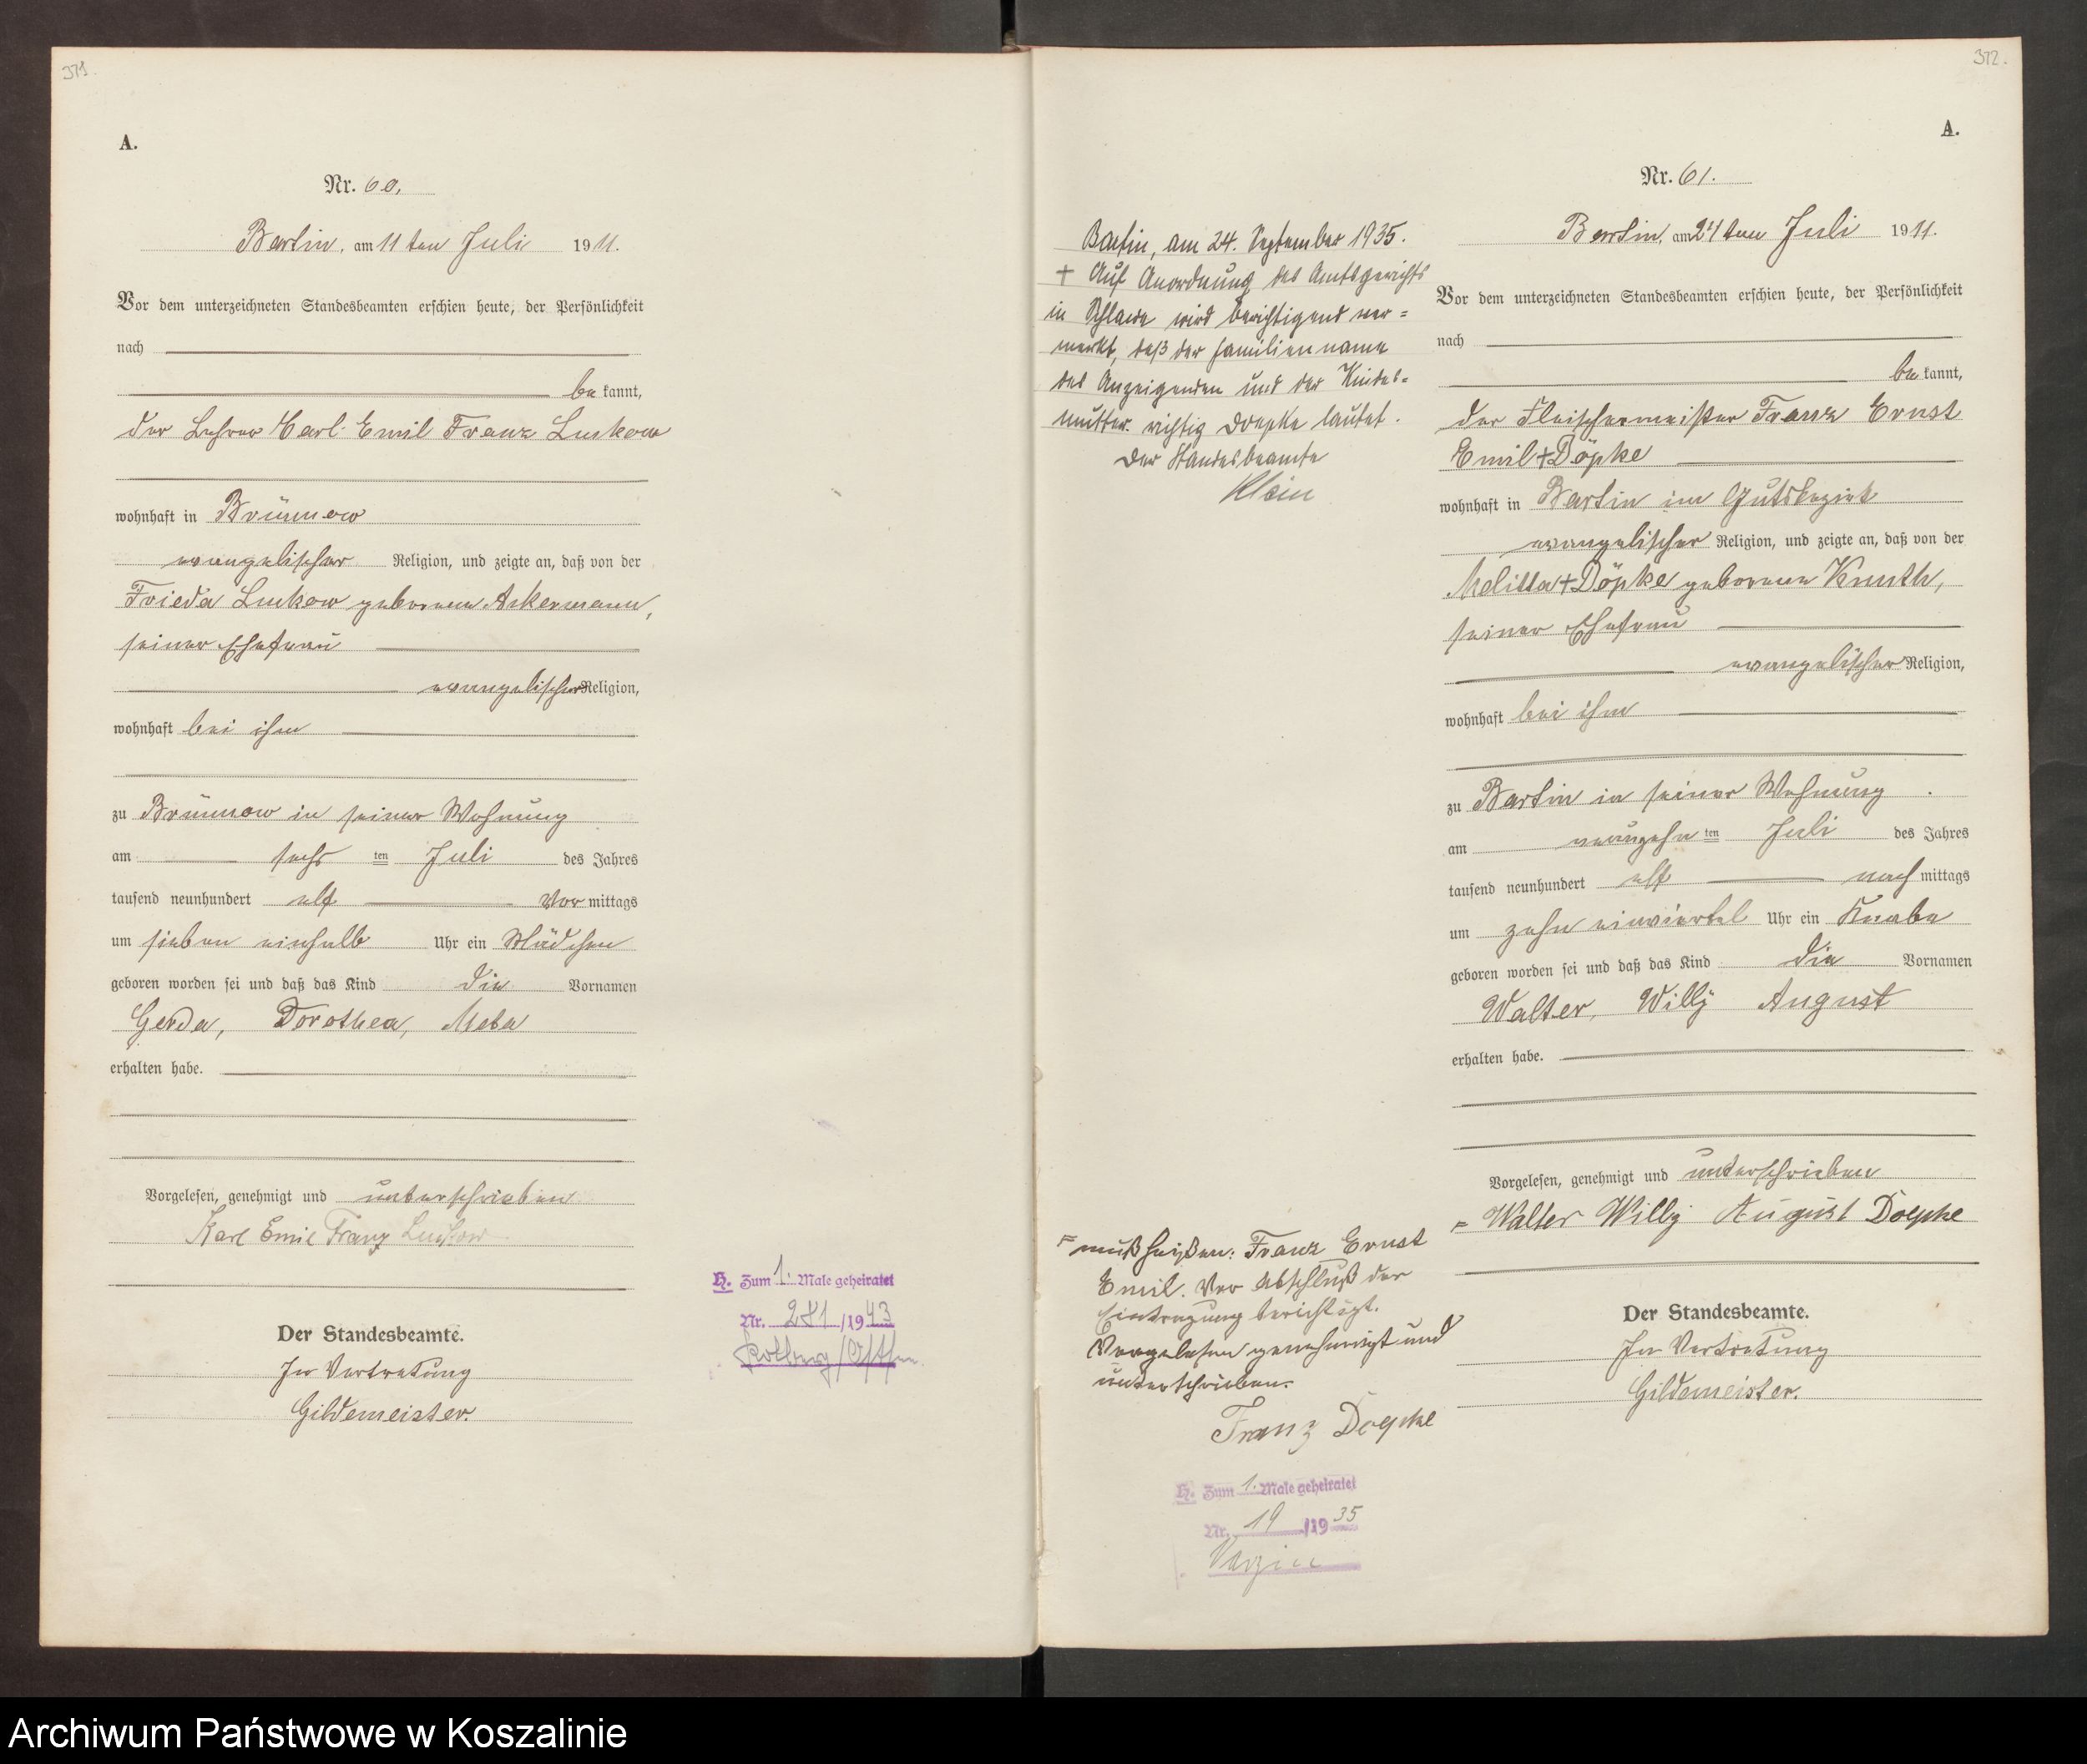 371.
A.
Nr. 60.
Bartin, am 11ten Juli 1911.
Vor dem unterzeichneten Standesbeamten erschien heute, der Persönlichkeit
nach
bekannt,
der Lehrer Karl Emil Franz Luckow
wohnhaft in Brünnow
evangelischer Religion, und zeigte an, daß von der
Frieda Luckow geborenen Ackermann,
seiner Ehefrau
evangelischer Religion,
wohnhaft bei ihm
zu Brünnow in seiner Wohnung
am sechsten Juli des Jahres
tausend neunhundert elf Vormittags
um sieben einhalb Uhr ein Mädchen
geboren worden sei und daß das Kind die Vornamen
Gerda, Dorothea, Meta
erhalten habe.
Vorgelesen, genehmigt und unterschrieben
Karl Emil Franz Luckow
Der Standesbeamte.
In Vertretung
Gildemeister.
H. Zum 1. Male geheiratet
Nr. 281/1943
Kolberg/Ostsee
372.
A.
Nr. 61.
Bartin, am 24ten Juli 1911.
Vor dem unterzeichneten Standesbeamten erschien heute, der Persönlichkeit
nach
bekannt,
der Fleischermeister Franz Ernst
Emil + Döpke
wohnhaft in Bartin im Gutsbezirk
evangelischer Religion, und zeigte an, daß von der
Melitta + Döpke geborenen Knuth,
seiner Ehefrau
evangelischer Religion,
wohnhaft bei ihm
zu Bartin in seiner Wohnung
am neunzehnten Juli des Jahres
tausend neunhundert elf nachmittags
um zehn einviertel Uhr ein Knabe
geboren worden sei und daß das Kind die Vornamen
Walter, Willy August
erhalten habe.
Vorgelesen, genehmigt und unterschrieben
= Walter Willy August Doepke
Der Standesbeamte.
In Vertretung
Gildemeister.
Bartin, am 24. September 1935.
+ Auf Anordnung des Amtsgerichts
in Schlawe wird berichtigend ver=
merkt, daß der Familienname
des Anzeigenden und der Kindes=
mutter richtig Doepke lautet.
Der Standesbeamte
Klein
= muß heißen: Franz Ernst
Emil. Vor Abschluß der
Eintragung berichtigt.
Vorgelesen genehmigt und
unterschrieben.
Franz Doepke
H. Zum 1. Male geheiratet
Nr. 19/1935
Varzin
Archiwum Państwowe w Koszalinie